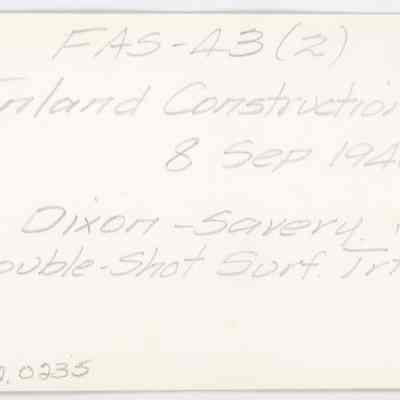 FAS-43(2)
Inland Construction
8 Sep 194
Dixon - Savery
ouble-Shot Surf. Trt
0235